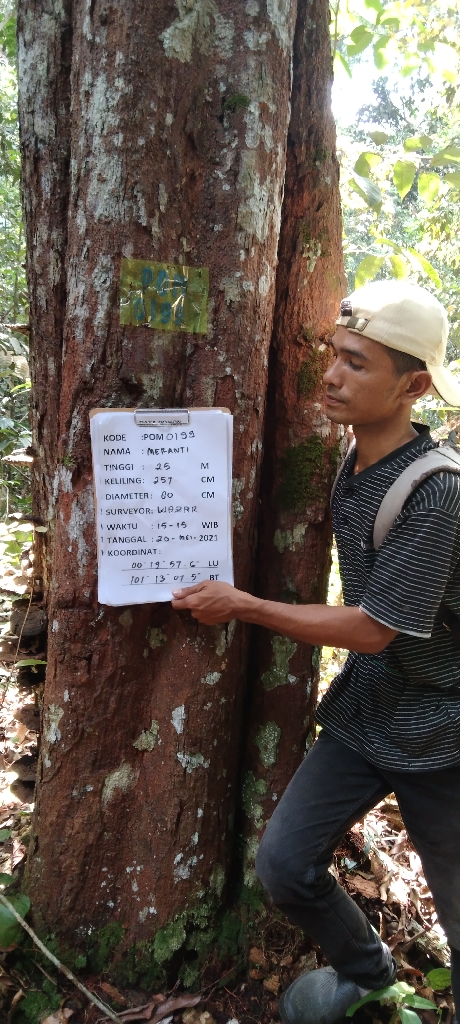 POM
0199
KODE :POM 0199
NAMA : MERANTI
TINGGI : 25 M
KELILING: 257 CM
DIAMETER: 80 CM
SURVEYOR: WAZAR
WAKTU : 15-15 WIB
TANGGAL : 20-MEI-2021
KOORDINAT:
00°19'57.6" LU
101°13'07.5" BT